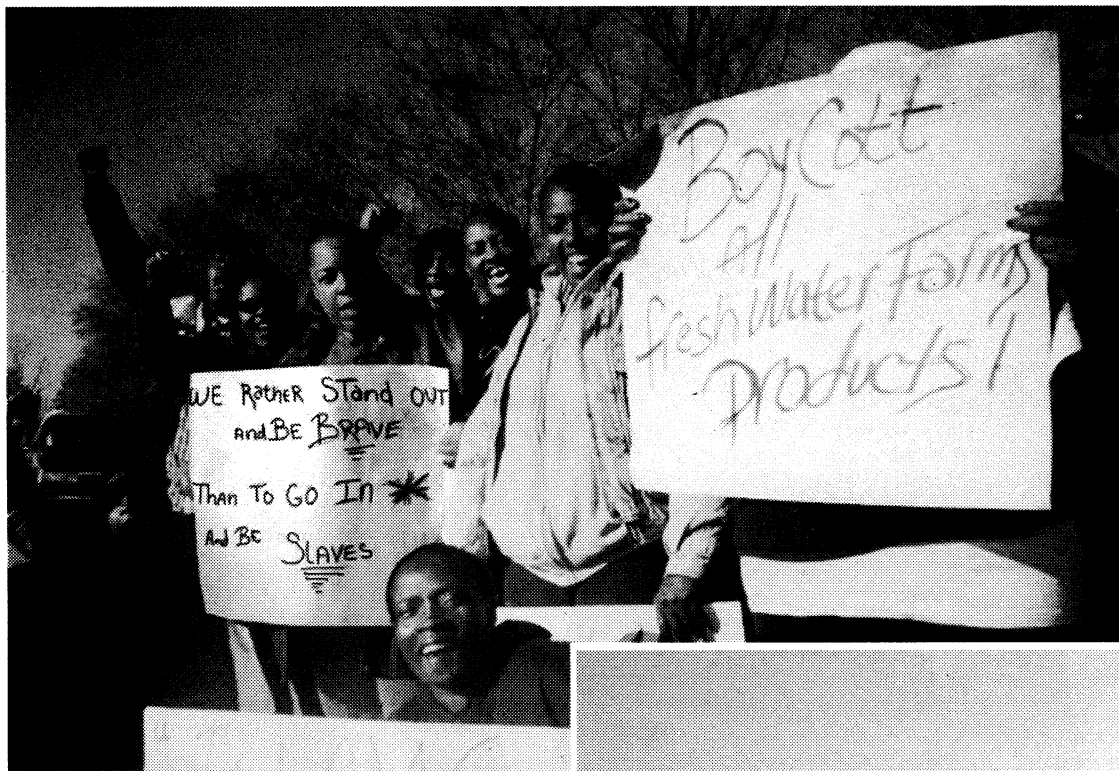 WE RatHER STand OUT
And BE BRAVE
THan To Go In
And BE SLAVES
BoyCott
All
freshWater Farms
Products!